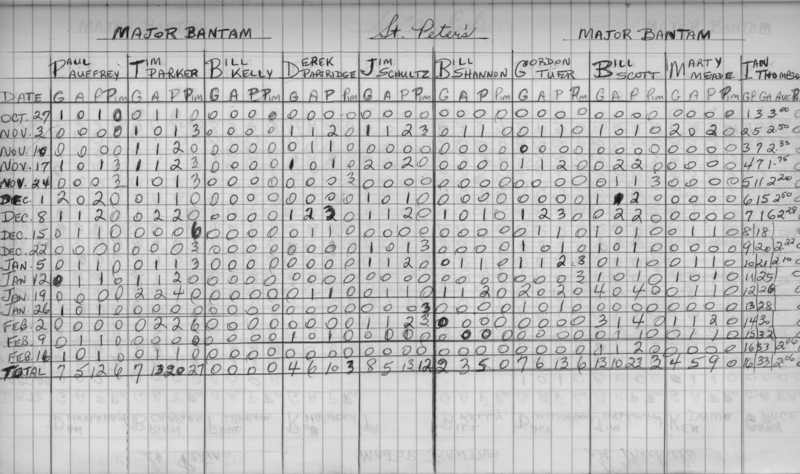 MAJOR BANTAM St. Peter's MAJOR BANTAM
PAUL TIM BILL DEREK JIM BILL GORDON BILL MARTY IAN
AUFFREY PARKER KELLY PARTRIDGE SCHULTZ SHANNON TUER SCOTT MEADE
DATE G A P Pim G A P Pim G A P Pim G A P Pim G A P Pim G A P Pim G A P Pim G A P Pim G A P Pim GP GA AVE
OCT. 27 1 0 1 0 0 1 1 0 0 0 0 0
NOV. 3 0 0 0 0 1 0 1 3 0 0 0 0 1 1 2 0 1 1 2 3 0 1 1 0 0 1 1 0 1 0 1 0 2 0 2 0 2 5 2.50
NOV. 10 0 0 0 0 1 1 2 0 0 0 0 0 0 1 1 0
NOV. 17 1 0 1 3 1 1 2 3 0 0 0 0 1 0 1 0 2 0 2 0 0 0 0 0 1 1 2 0 0 2 2 0 0 0 0 0 4 7 1.75
NOV. 24 0 0 0 3 1 0 1 3 0 0 0 0 0 0 0 3 0 0 0 0 0 0 0 0 0 0 0 0 0 1 1 3 0 0 0 0 5 11 2.20
DEC. 1 2 0 2 0 0 1 1 0 0 0 0 0 0 0 0 0 1 0 1 0
DEC. 8 1 1 2 0 0 2 2 0 0 0 0 0 1 2 3 0 1 1 2 0 1 0 1 0 1 2 3 0 0 2 2 0 0 0 0 0 7 16 2.28
DEC. 15 0 1 1 0 0 0 0 6 0 0 0 0 0 1 1 0 0 0 0 0
DEC. 22 0 0 0 0 0 0 0 3 0 0 0 0 0 0 0 0 1 0 1 3 0 0 0 0 1 0 1 0 1 0 1 0 0 0 0 0
JAN. 5 0 1 1 0 0 1 1 3 0 0 0 0 0 0 0 0 1 1 2 0 0 1 1 0 1 1 2 3 0 1 1 0 0 1 1 0 10 21 2.10
JAN 12 0 1 1 0 1 1 2 0 0 0 0 0 0 0 0 0 0 0 0 0 0 0 0 0 0 0 0 3 1 0 1 0 1 0 1 0 11 25
JAN. 19 0 0 0 0 2 2 4 0 0 0 0 0 0 1 1 0 0 0 0 0 1 1 2 0 2 0 2 0 4 0 4 0 0 1 1 0 12 26
JAN. 26 1 0 1 0 0 0 0 0 0 0 0 0 0 0 0 0 0 0 0 3 0 0 0 0 1 0 1 0 0 0 0 0 0 0 0 0 13 28
FEB. 2 0 0 0 0 0 2 2 6 0 0 0 0 0 0 0 0 1 1 2 3 0 0 0 0 0 0 0 0 3 1 4 0 1 1 2 0
FEB. 9 0 1 1 0 0 0 0 0 0 0 0 0 1 0 1 0 0 0 0 0 0 0 0 0 0 0 0 0 0 1 1 0 0 1 1 0 15 32
FEB. 16 1 0 1 0 0 1 1 0 0 0 0 0 0 0 0 0 0 0 0 0 0 0 0 0 0 0 0 0 1 1 2 0 0 0 0 0 16 33 2.06
TOTAL 7 5 12 6 7 13 20 27 0 0 0 0 4 6 10 3 8 5 13 12 2 3 5 0 7 6 13 6 13 10 23 3 4 5 9 0 16 33 2.06